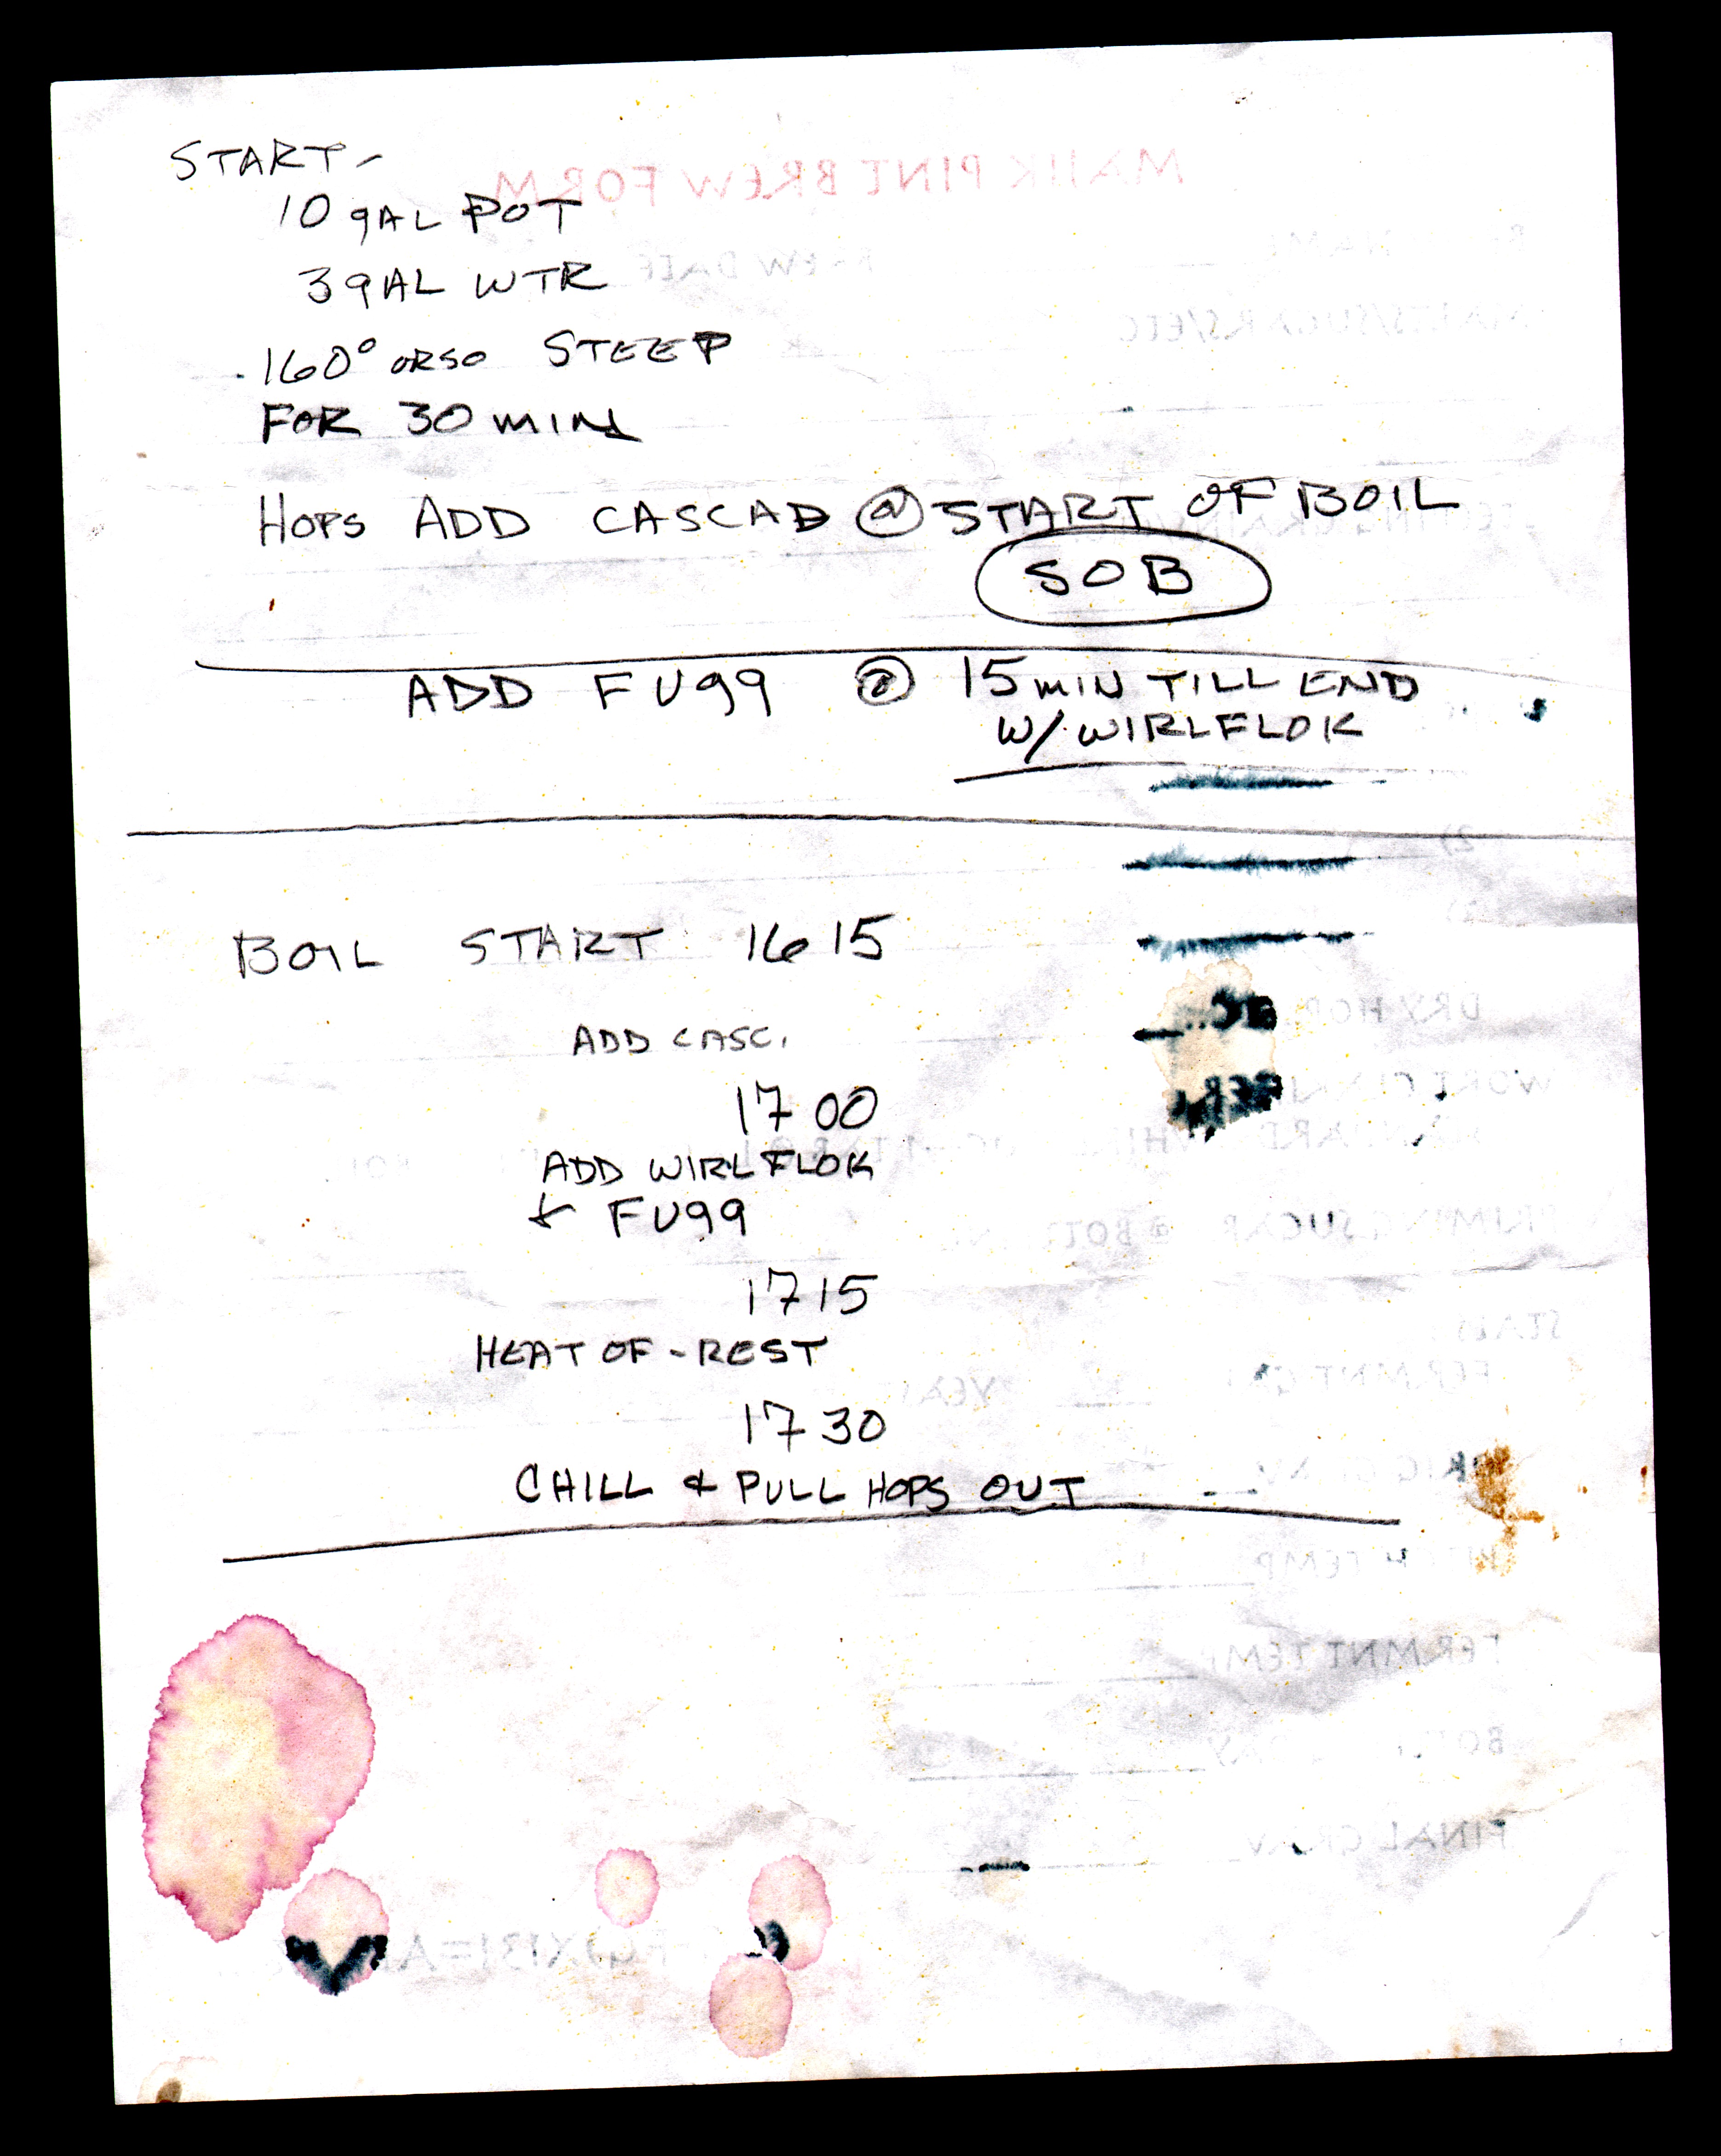 START-
10 gAL POT
3 gAL WTR
160° OR SO STEEP
FOR 30 MIN
HOPS ADD CASCAD @ START OF BOIL
SOB
ADD FUgg @ 15 MIN TILL END
W/ WIRLFLOK
BOIL START 1615
ADD CASC.
1700
ADD WIRLFLOK
+ FUgg
1715
HEAT OF - REST
1730
CHILL & PULL HOPS OUT